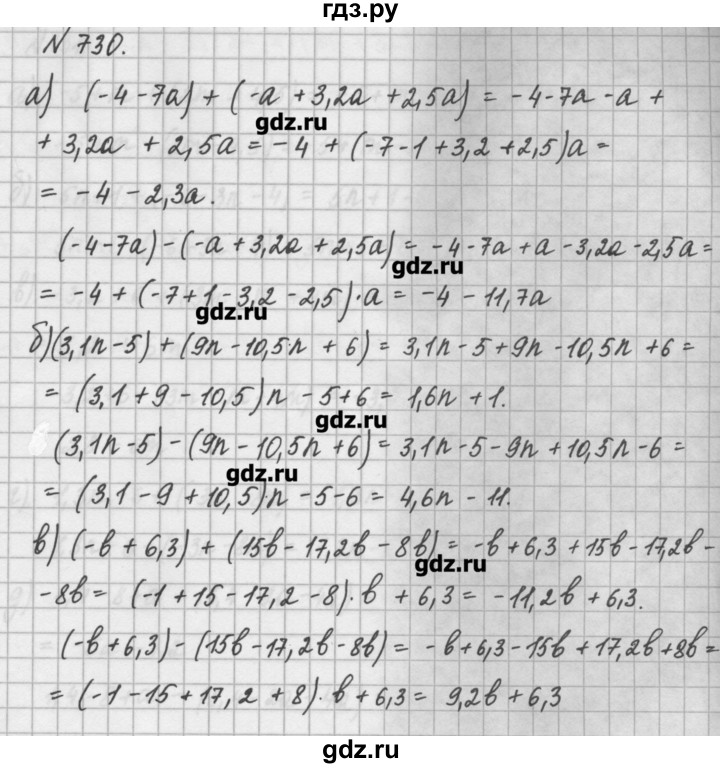 гдз.ру
№ 730.
а) (-4-7а) + (-а + 3,2а + 2,5а) = -4-7а -а +
gdz.ru
+ 3,2а + 2,5а = -4 + (-7-1+3,2+2,5)а =
= -4 - 2,3а.
(-4-7а) - (-а + 3,2а + 2,5а) = -4-7а + а - 3,2а - 2,5а =
gdz.ru
= -4 + (-7+1-3,2-2,5)·а = -4 - 11,7а
gdz.ru
б) (3,1n-5) + (9n - 10,5n + 6) = 3,1n - 5 + 9n - 10,5n + 6 =
= (3,1 + 9 - 10,5)n - 5+6 = 1,6n + 1.
gdz.ru
(3,1n-5) - (9n - 10,5n + 6) = 3,1n - 5 - 9n + 10,5n - 6 =
gdz.ru
= (3,1 - 9 + 10,5)·n - 5-6 = 4,6n - 11.
в) (-в + 6,3) + (15в - 17,2в - 8в) = -в + 6,3 + 15в - 17,2в -
gdz.ru
-8в = (-1 + 15 - 17,2 - 8)·в + 6,3 = -11,2в + 6,3.
(-в + 6,3) - (15в - 17,2в - 8в) = -в + 6,3 - 15в + 17,2в + 8в =
= (-1 - 15 + 17,2 + 8)·в + 6,3 = 9,2в + 6,3
gdz.ru